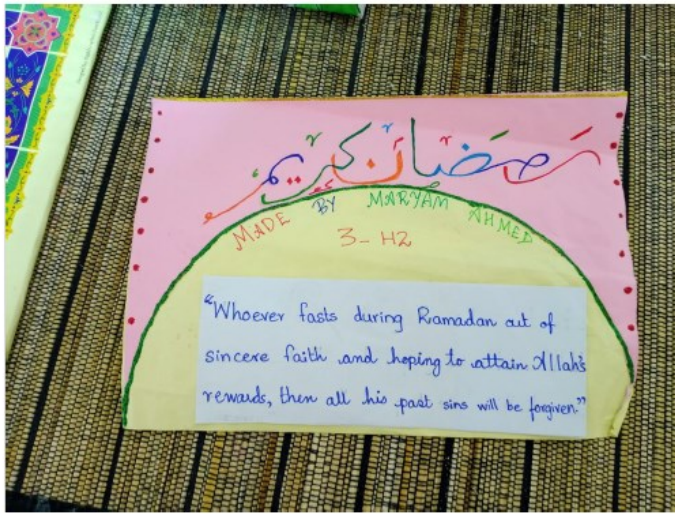 رمضان كريم
MADE BY MARYAM AHMED
3-H2
"Whoever fasts during Ramadan out of
sincere faith and hoping to attain Allah's
rewards, then all his past sins will be forgiven."